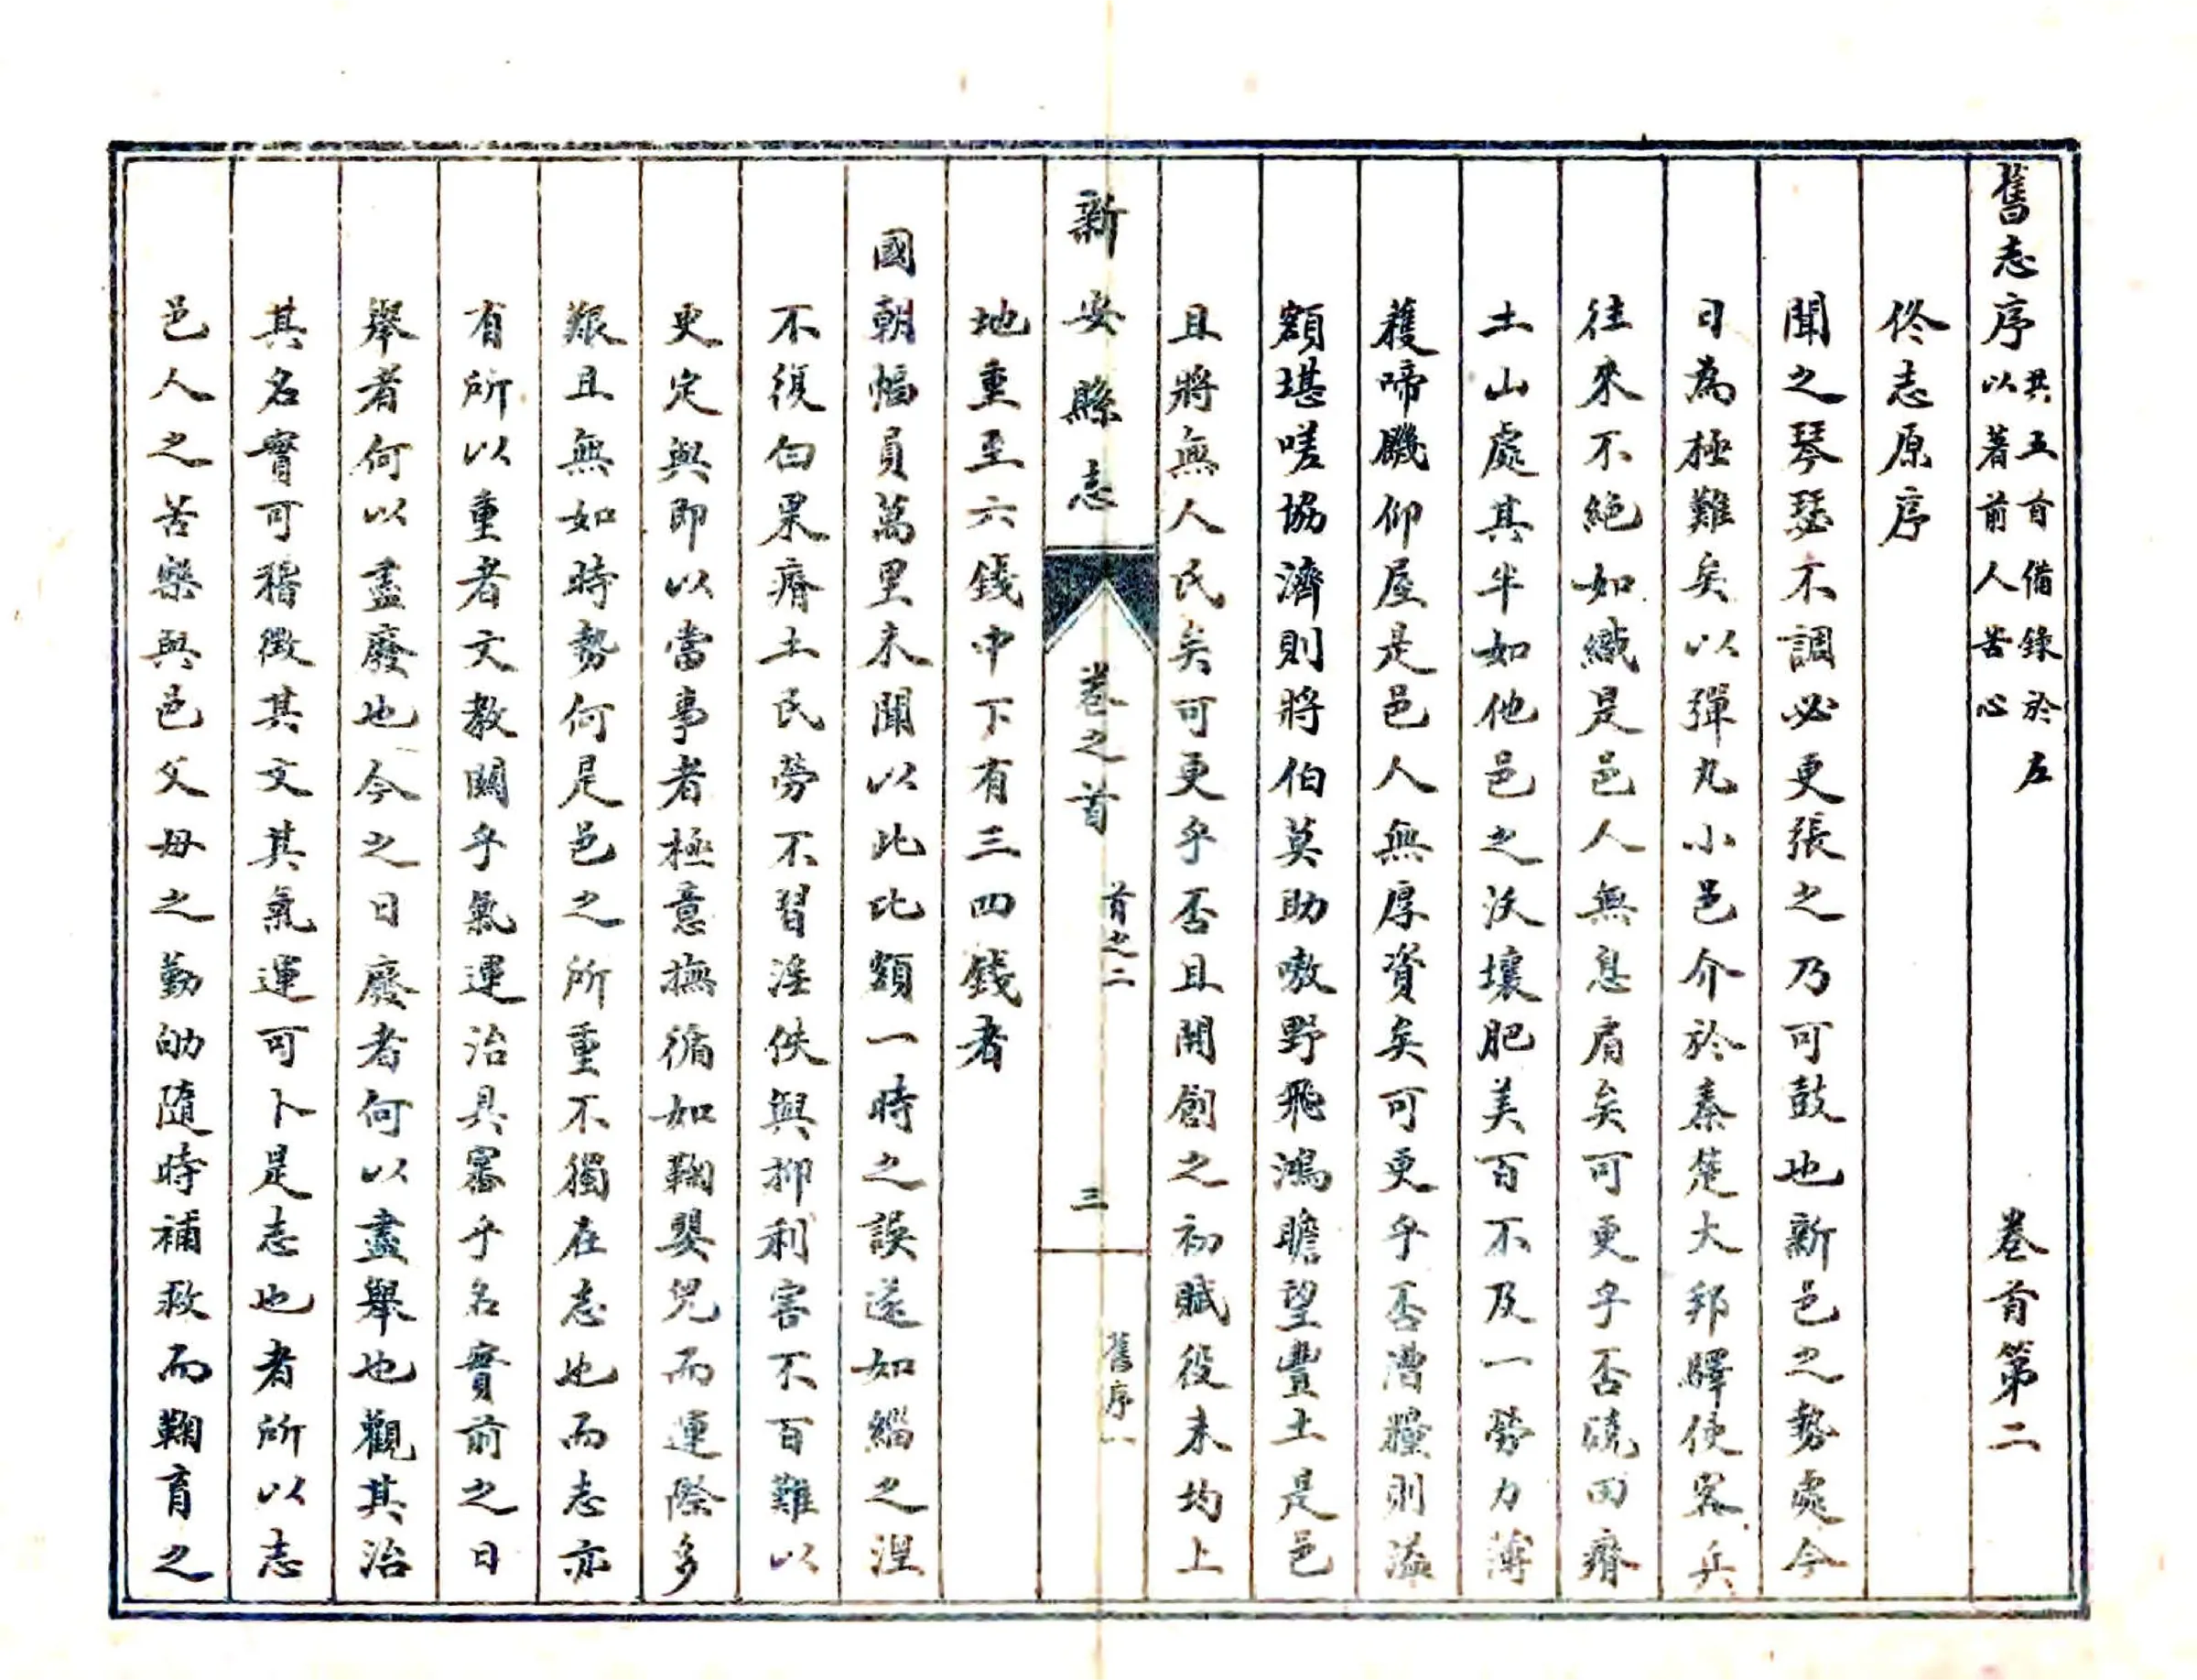 舊志序 共五首備錄於左以著前人苦心 卷首第二
佟志原序
聞之琴瑟不調必更張之乃可鼓也新邑之勢處今
日為極難矣以彈丸小邑介於秦楚大邦驛使客兵
往來不絕如織是邑人無息肩矣可更乎否磽田瘠
土山處其半如他邑之沃壤肥美百不及一勞力薄
穫啼饑仰屋是邑人無厚資矣可更乎否漕糧則溢
額堪嗟協濟則將伯莫助嗷野飛鴻瞻望豐土是邑
且將無人民矣可更乎否且開創之初賦役未均上
新安縣志 卷之首 首之二 三 舊序一
地重至六錢中下有三四錢者
國朝幅員萬里未聞以此比額一時之誤遂如緇之涅
不復白果瘠土民勞不習淫佚與抑利害不百難以
更定與即以當事者極意撫循如鞠嬰兒而運際多
艱且無如時勢何是邑之所重不獨在志也而志亦
有所以重者文教關乎氣運治具審乎名實前之日
舉者何以盡廢也今之日廢者何以盡舉也觀其治
其名實可稽徵其文其氣運可卜是志也者所以志
邑人之苦樂與邑父母之勤劬隨時補救而鞠育之